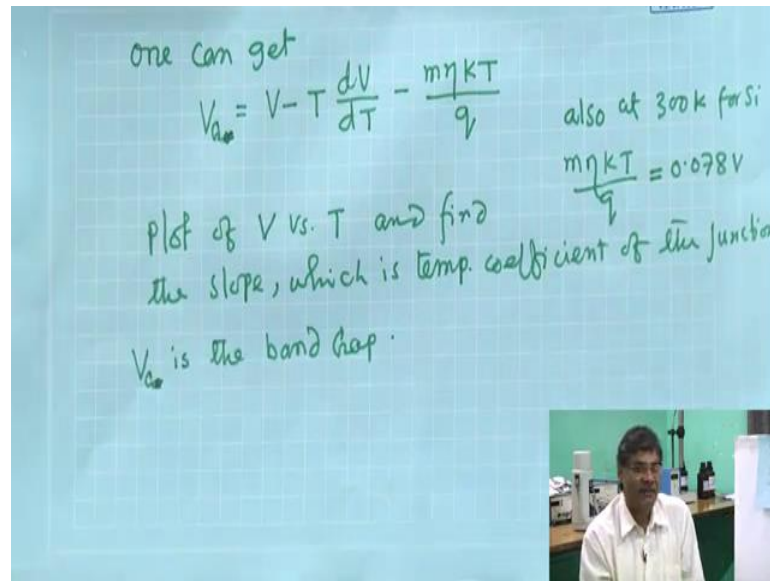 one can get
V = V - T dV/dT - mηKT/q
also at 300k for Si
mηKT/q = 0.078V
Plot of V Vs. T and find
the slope, which is temp. coefficient of the junction
V is the band Gap.